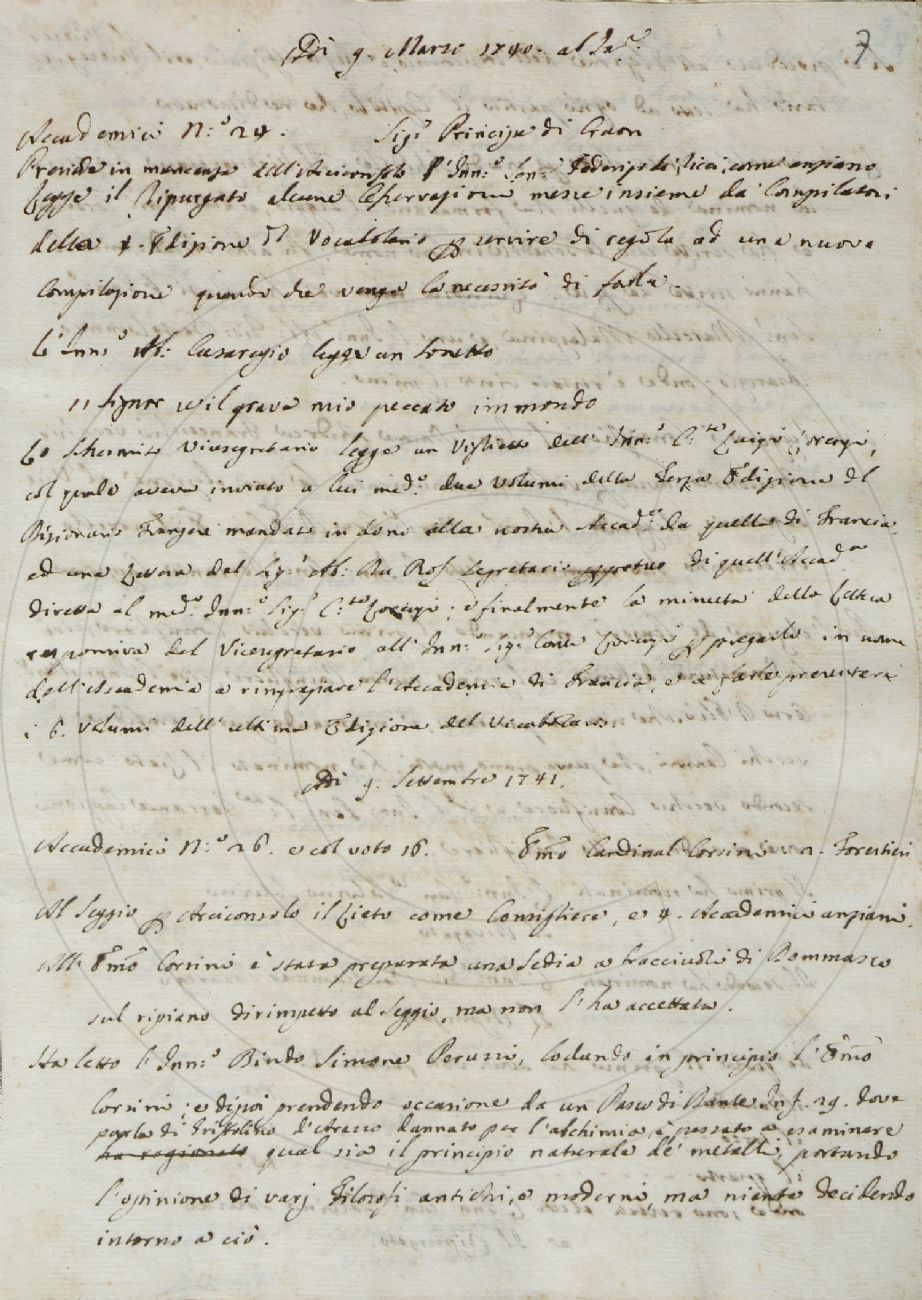 Adì 9. Marzo 1740. al Inc.e
7
Accademici N.o 24. Sig.r Principe di Craon
Presiede in mancanza dell'Arciconsolo l'Inn.o Sen.r Federigo de' Ricci, come anziano
Legge il Ripurgato alcune Osservazioni messe insieme da' Compilatori
della 4. Edizione del Vocabolario per servire di regola ad una nuova
Compilazione quando che venga la necessità di farla.
L'Inn.o Ab: Casaregio legge un Sonetto
Signor se il grave mio peccato immondo
Lo Schermito Vicesegretario legge un Viglietto dell'Inn.o C.te Luigi Lorenzi,
col quale aveva inviato a lui med.o due Volumi della Terza Edizione del
Dizionario Franzese mandato in dono alla nostra Accad.a da quella di Francia
ed una Lettera del Sig.r Ab: Segretario perpetuo di quell'Accad.a
diretta al med.o Inn.o Sig.r C.te Lorenzi; e finalmente la minuta della Lettera
responsiva del Vicesegretario all'Inn.o Sig.r Conte Lorenzi per pregarlo in nome
dell'Accademia a ringraziare l'Accademia di Francia, e a farle presentare
i 6. Volumi dell'ultima Edizione del Vocabolario.
Adì 9. Settembre 1741.
Accademici N.o 26. e col voto 16. Emo Cardinal Corsini 2. Forestieri
Al Seggio per Arciconsolo il Lieto come Consigliere, e 4. Accademici anziani.
All'Emo Corsini è stata preparata una Sedia a bracciuoli di Dommasco
sul ripiano dirimpetto al Seggio, ma non l'ha accettata.
Ha letto l'Inn.o Bindo Simone Peruzzi, lodando in principio l'Emo
Corsini; e dipoi prendendo occasione da un Passo di Dante Inf. 29. dove
parla di Griffolino d'Arezzo dannato per l'alchimia, è passato a esaminare
ha ragionato qual sia il principio naturale de' metalli, portando
l'opinione di varj Filosofi antichi, e moderni, ma niente decidendo
intorno a ciò.